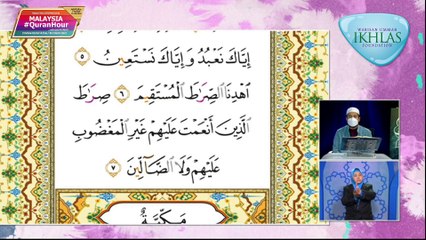 MALAYSIA
#QuranHour
WARISAN UMMAH
IKHLAS
FOUNDATION
إِيَّاكَ نَعْبُدُ وَإِيَّاكَ نَسْتَعِينُ ٥
ٱهْدِنَا ٱلصِّرَٰطَ ٱلْمُسْتَقِيمَ ٦ صِرَٰطَ
ٱلَّذِينَ أَنْعَمْتَ عَلَيْهِمْ غَيْرِ ٱلْمَغْضُوبِ
عَلَيْهِمْ وَلَا ٱلضَّآلِّينَ ٧
مَكِّيَّةٌ